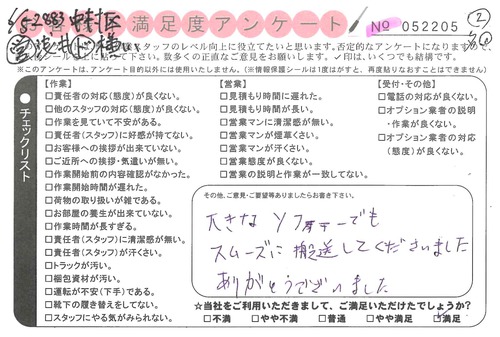 お客様満足度アンケート
No 052205
スタッフのレベル向上に役立てたいと思います。否定的なアンケートになりますので、
お願いします。✓印は、いくつでも結構です。
※このアンケートは、アンケート目的以外には使用いたしません。(※情報保護シールは1度はがすと、再度貼りなおすことはできません)
チェックリスト
【作業】
□責任者の対応(態度)が良くない。
□他のスタッフの対応(態度)が良くない。
□作業を見ていて不安がある。
□責任者(スタッフ)に好感が持てない。
□お客様への挨拶が出来ていない。
□ご近所への挨拶・気遣いが無い。
□作業開始前の内容確認がなかった。
□作業開始時間が遅れた。
□荷物の取り扱いが雑である。
□お部屋の養生が出来ていない。
□作業時間が長すぎる。
□責任者(スタッフ)に清潔感が無い。
□責任者(スタッフ)が汗くさい。
□トラックが汚い。
□梱包資材が汚い。
□運転が不安(下手)である。
□靴下の履き替えをしてない。
□スタッフにやる気がみられない。
【営業】
□見積もり時間に遅れた。
□見積もり時間が長い。
□営業マンに清潔感が無い。
□営業マンが煙草くさい。
□営業マンが汗くさい。
□営業態度が良くない。
□営業の説明と作業が一致してない。
【受付・その他】
□電話の対応が良くない。
□オプション業者の説明
・作業が良くない。
□オプション業者の対応
(態度)が良くない。
その他、ご意見・ご要望等ありましたらお書き下さい。
大きなソファーでも
スムーズに搬送してくださいました
ありがとうございました
☆当社をご利用いただきまして、ご満足いただけたでしょうか?
□不満 □やや不満 □普通 □やや満足 □満足